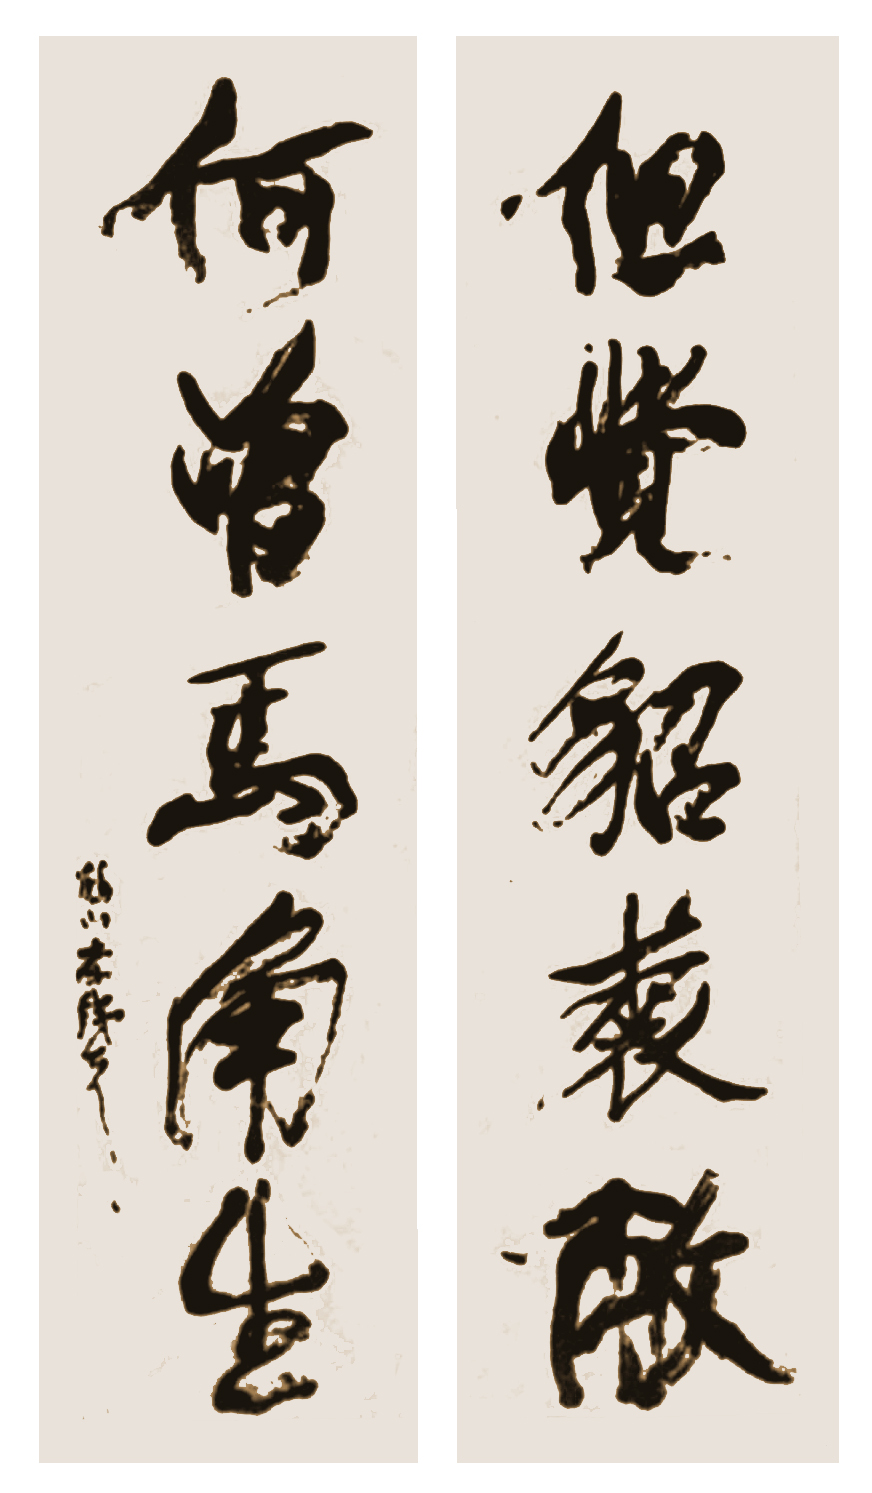 但覺貂裘敝
何曾馬角生